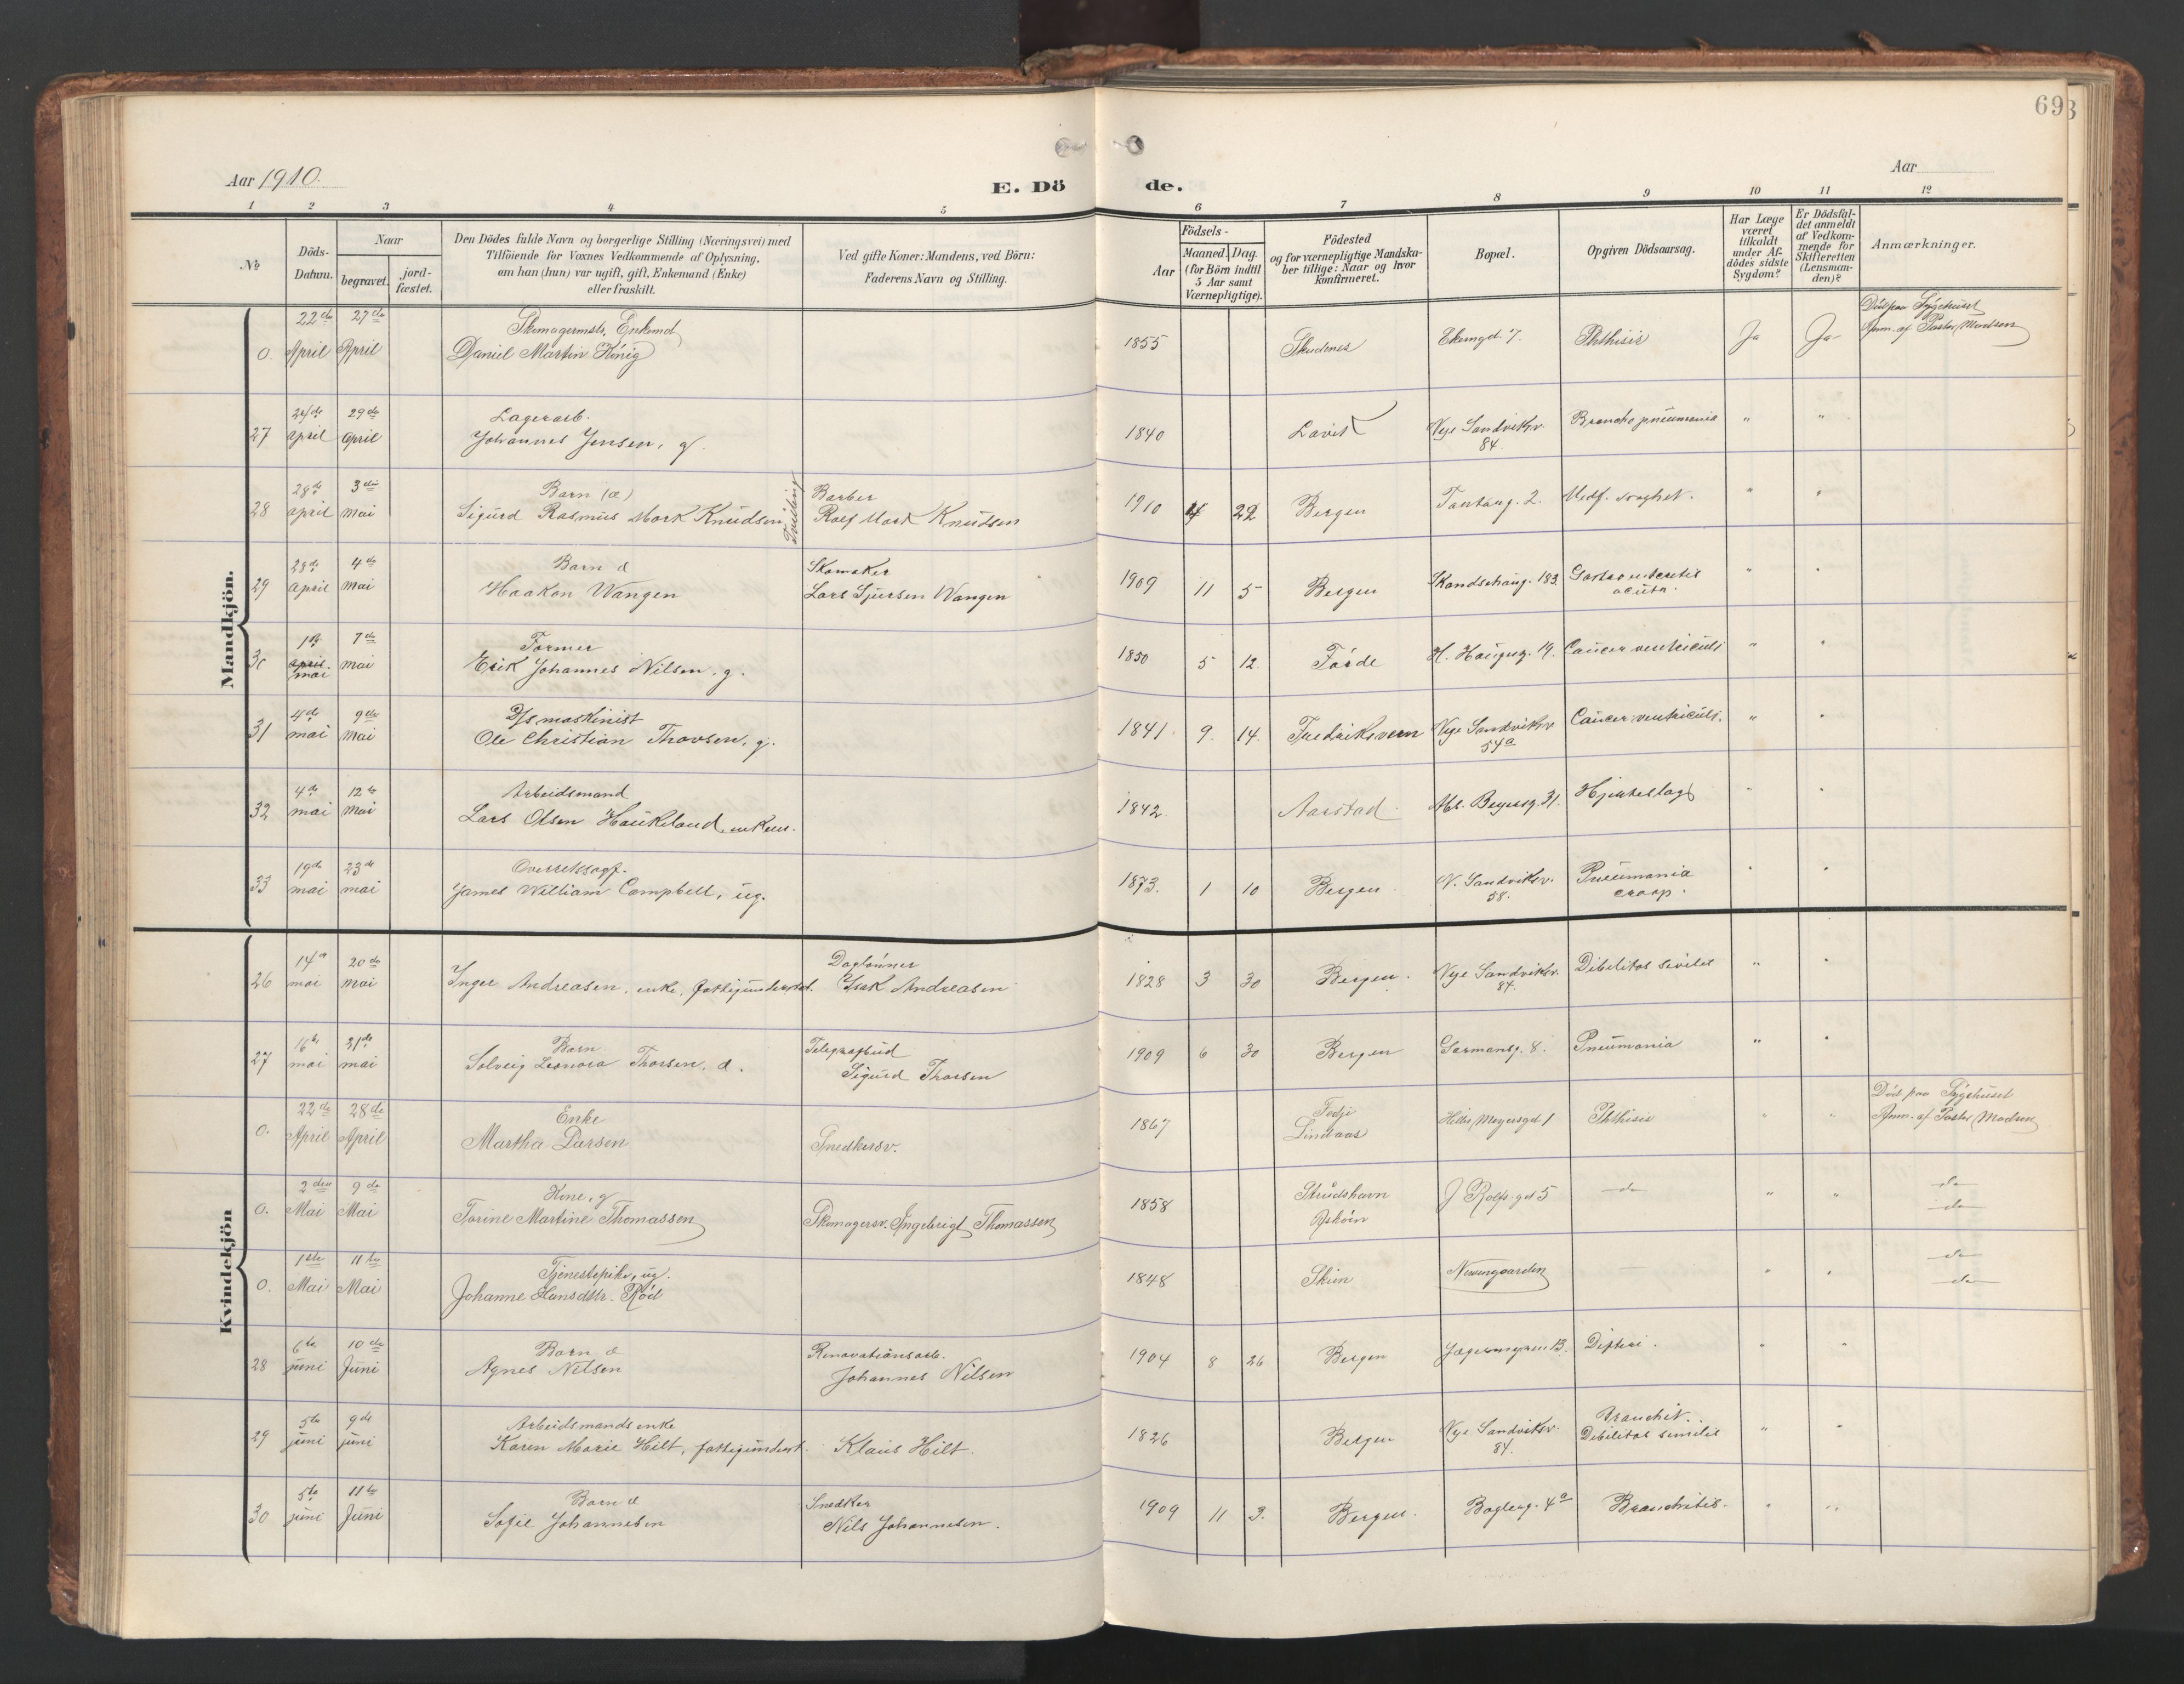 69
Aar 1910.
E. Dö de.
Aar
1 2 3 4 5 6 7 8 9 10 11 12
No
Döds-Datum.
Naar
begravet.
jord-fæstet.
Den Dödes fulde Navn og borgerlige Stilling (Næringsvei) med
Tilföiende for Voxnes Vedkommende af Oplysning,
om han (hun) var ugift, gift, Enkemand (Enke)
eller fraskilt.
Ved gifte Koner: Mandens, ved Börn:
Faderens Navn og Stilling.
Födsels-
Aar
Maaned. Dag.
(for Börn indtil
5 Aar samt
Værnepligtige).
Födested
og for værnepligtige Mandska-
ber tillige: Naar og hvor
konfirmeret.
Bopæl.
Opgiven Dödsaarsag.
Har Læge
været
tilkaldt
under Af-
dödes sidste
Sygdom?
Er Dödsfal-
det anmeldt
af Vedkom-
mende for
Skifteretten
(Lensman-
den)?
Anmærkninger.
Mandkjön.
22de 27de Skomagermstr. Enkemd Död paa Sygehuset
0. April April Daniel Martin König 1855 Skudenes Ekerngd. 7. Phthisis Ja Ja Anm. af Pastor Madsen
24de 29de Lagerarb.
27 april april Johannes Jensen, g. 1840 Lavik Nye Sandviksv. 84. Broncho pneumonia " "
28de 3die Barn (æ) Tvilling Barber
28 april mai Sigurd Rasmus Mork Knudsen Rolf Mork Knudsen 1910 4 22 Bergen Tartarg. 2. Medf. svaghet. " "
28de 4de Barn æ Skomaker
29 april mai Haakon Wangen Lars Sjursen Wangen 1909 11 5 Bergen Skandsehaug. 183. Gastroenteritis acuta. " "
1ste 7de Former
30 april. mai mai Erik Johannes Nilsen, g. 1850 5 12. Förde H. Haugesg. 19. Cancer ventriculi " "
4de 9de D/s maskinist
31 mai mai Ole Christian Thorsen, g. 1841 9. 14. Fredriksvern Nye Sandviksv 54a Cancer ventriculi. " "
4de 12te Arbeidsmand
32 mai mai Lars Olsen Haukeland, enkem. 1842. Aarstad Abs. Beyersg. 31. Hjerteslag " "
19de 23de Overretssagf.
33 mai mai James William Campbell, ug. 1873. 1 10 Bergen. N. Sandviksv. 58. Pneumonia croup. " "
Kvindekjön
14de 20de Daglønner
26 mai mai Inger Andreasen, enke, fattigunderst. Isak Andreasen 1828 3 30 Bergen. Nye Sandviksv. 84. Debilitas senilis " "
16de 31de Barn Telegrafbud
27 mai mai Solveig Leonora Thorsen, æ. Sigurd Thorsen 1909 6 30 Bergen Garmansg. 8. Pneumonia " "
22de 28de Enke Fedje Död paa Sygehuset
0. April April Martha Larsen Snedkersv. 1867 Lindaas Meyersgd 1 Phthisis " " Anm. af Pastor Madsen
2den 9de Kone, g Strudshavn do
0. Mai Mai Torine Martine Thomassen Skomagersv. Ingebrigt Thomassen 1858 Askøen J Rolfs gd 5 do " " do
1ste 11te Tjenestepike, ug. do
0. Mai Mai Johanne Hansdtr. Röd 1848 Skien Nevengaarden — " " do
6te 10de Barn æ Renovationsarb.
28 juni Juni Agnes Nilsen Johannes Nilsen 1904 8 26 Bergen Jægermyren 13. Difteri. " "
5te 9de Arbeidsmands enke Bronchit.
29 juni juni Karen Marie Hilt, fattigunderst. Klaus Hilt. 1826 Bergen Nye Sandviksv. 84. Debilitas senilis " "
5te 11te Barn æ Snedker
30 juni Juni Sofie Johannesen Nils Johannesen. 1909 11 3. Bergen. Bogleng. 4a Bronchitis. " "